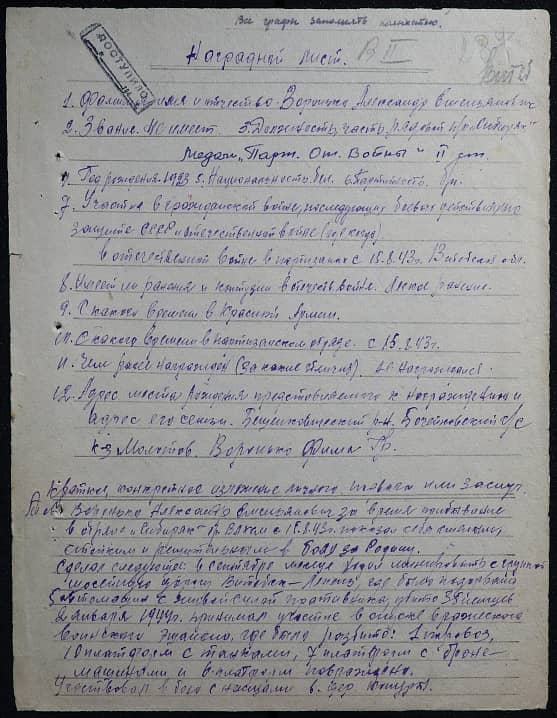 Все графы заполнять полностью.
ДОСТУПИЛО
Наградной лист. В II
1. Фамилия, имя и отчество. Воронько Александр Емельянович
2. Звание. Не имеет. 3. Должность, часть. Рядовой отр. „Сибиряк"
Медаль „Парт. От. Войны" II ст.
4. Год рождения. 1923 5. Национальность. Бел. 6. Партийность. бп.
7. Участие в гражданской войне, последующих боевых действиях по
защите СССР и отечественной войне (где, когда)
в отечественной войне в партизанах с 15.8.43г. Витебская обл.
8. Имеет ли ранения и контузии в отечеств. войне. Легкое ранение.
9. С какого времени в Красной Армии.
10. С какого времени в партизанском отряде. с 15.8.43г.
11. Чем ранее награжден (за какие отличия). Не награждался.
12. Адрес места рождения представляемого к награждению и
адрес его семьи. Бешенковический р-н. Бочейковский с/с
к-з Молотов. Воронько Фима Гр.
Краткое, конкретное изложение личного подвига или заслуг.
Воронько Александр Емельянович за время пребывания
в отряде „Сибиряк" с 15.8.43г. показал себя смелым,
стойким и решительным в бою за Родину.
Сделал следующее: в сентябре месяце ходил минировать с группой
шоссейную дорогу Витебск – Лепель, где была подорвана
автомашина с живой силой противника, убито 35 немцев
2 января 1944г. принимал участие в вражеского
воинского эшелона, где было разбито: 1 паровоз,
10 платформ с танками, 7 платформ с броне-
машинами и 8 платформ повреждено.
Участвовал в бою с немцами в дер.